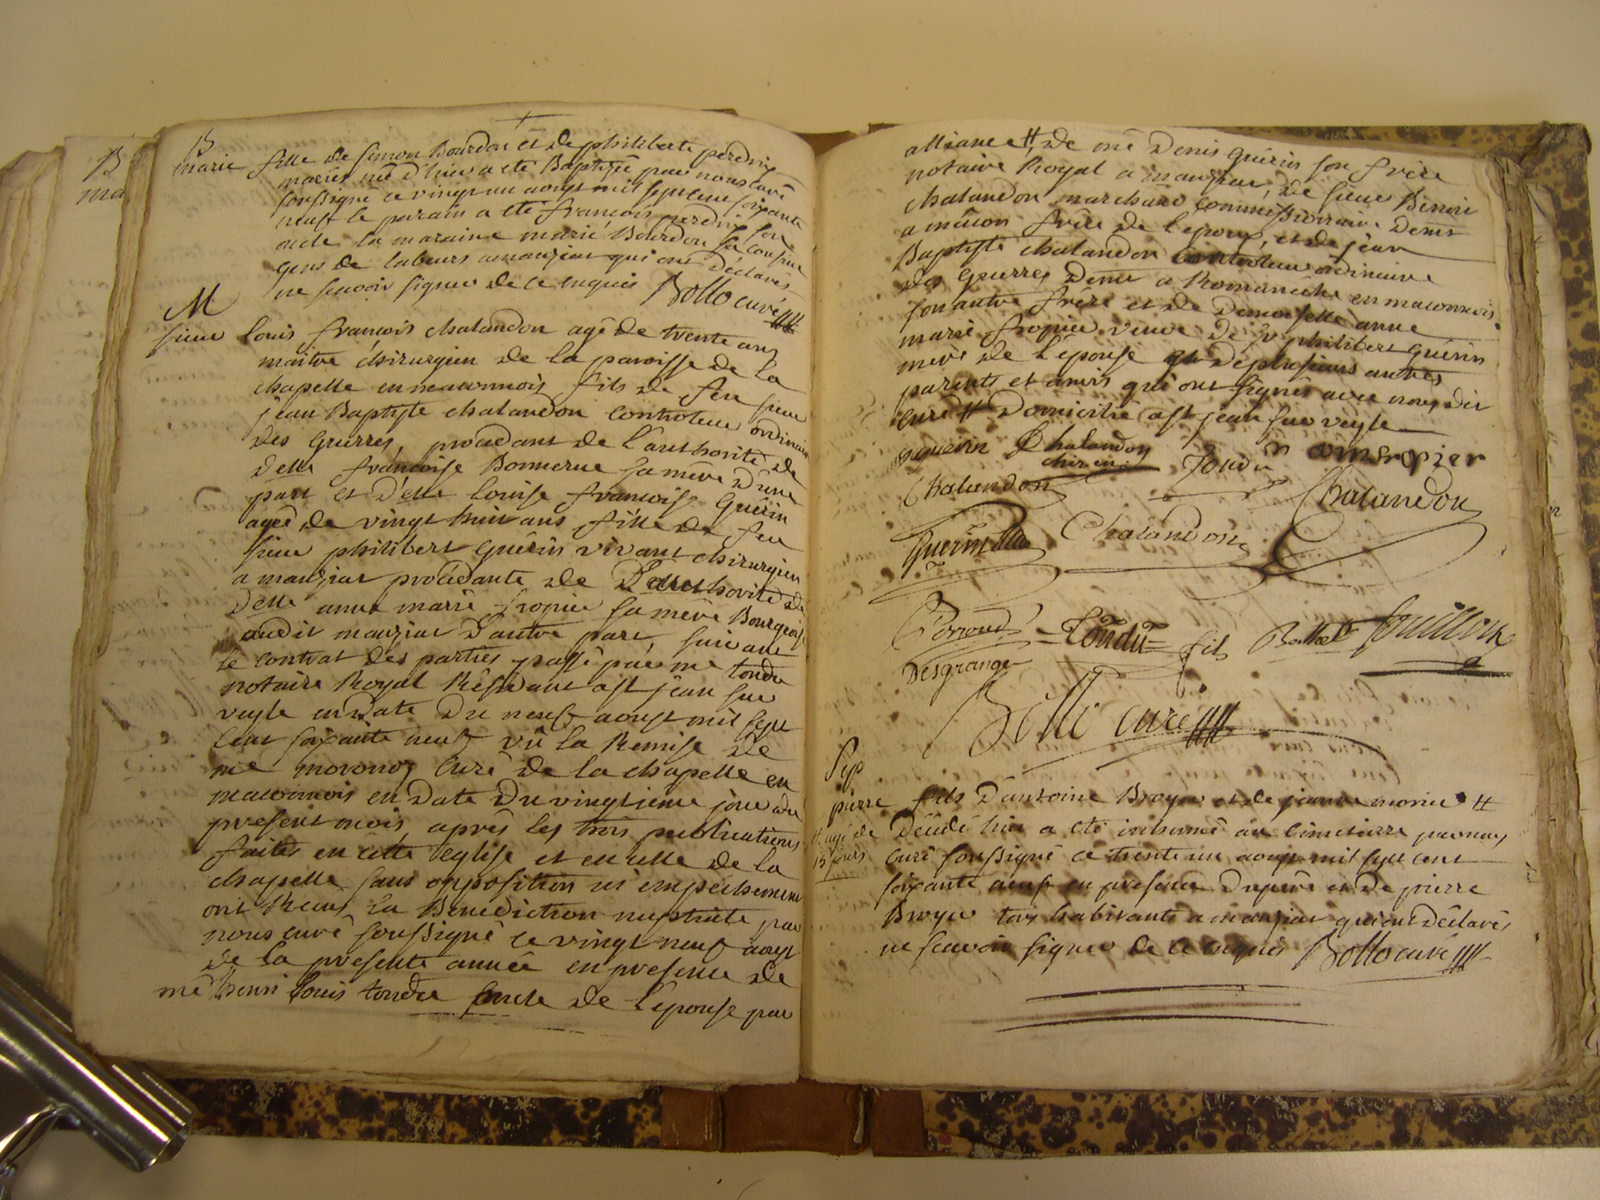 B
ma
B
marie fille de simon Bourdon et de philiberte perdrix
mariés née d'hier a été Baptisée par nous curé
soussigné ce vingt un aoust mil sept cent soixante
neuf le parain a été francois perdrix son
oncle la maraine marie Bourdon sa cousine
gens de labeurs a manziat qui ont déclarés
ne scavoir signer de ce enquis Bollo curé
M
sieur louis françois chalandon agé de trente ans
maître chirurgien de la paroisse de la
chapelle en maconnois fils de feu sieur
jean Baptiste chalandon controleur ordinaire
des guerres, procedant de l'authorité de
delle françoise Bonnerue sa mère d'une
part et d'elle louise francoise Guérin
agée de vingt huit ans fille de feu
sieur philibert guérin vivant chirurgien
a manziat procedante de L'authorité de
delle anne marie fropier sa mère Bourgeoise
audit manziat d'autre part, suivant
le contrat des parties passé par me tondu
notaire Royal Résidant a st jean sur
veyle en Date du neuf aoust mil sept
cent soixante neuf vû la Remise de
me curé de la chapelle en
maconnois en Date du vingtieme jour du
present mois après les trois publications
faites en cette eglise et en celle de la
chapelle sans opposition ni empechement
ont Reçus la Benediction nuptiale par
nous curé soussigné ce vingt neuf aoust
de la presente année en presence de
me henri louis tondu oncle de l'epouse par
alliance #, de me Denis guérin son frère
notaire Royal a manziat, de sieur Benoit
chalandon marchand commissionnaire Demt
a mâcon frère de l'epoux, et de jean
Baptiste chalandon controleur ordinaire
des guerres Demt a Romaneche en maconnois
son autre frère et de Demoiselle anne
marie fropier veuve de sr philibert guérin
mere de l'épouse et de plusieurs autres
parents et amis qui ont signés avec nous dit
curé # Domicilié a st jean sur veyle
guerin Chalandon
chirurn
Tondu fropier
Chalandon
Chalandon
Guerin
Chalandon
Perroud = Tondu = fils Berthelet
Desgranges
Bollo curé
Sep
pierre fils d'antoine Broyer et de jeanne morier #
# agé de
15 jours
Décédé hier a été inhumé au cimetierre par nous
curé soussigné ce trente un aoust mil sept cent
soixante neuf en presence du père et de pierre
Broyer tous habitants a manziat qui ont déclarés
ne scavoir signer de ce enquis Bollo curé